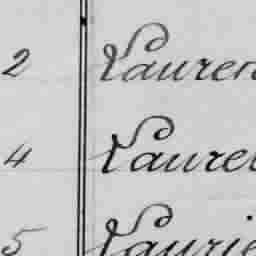 2 Lauren
4 Laurel
5 Laurie